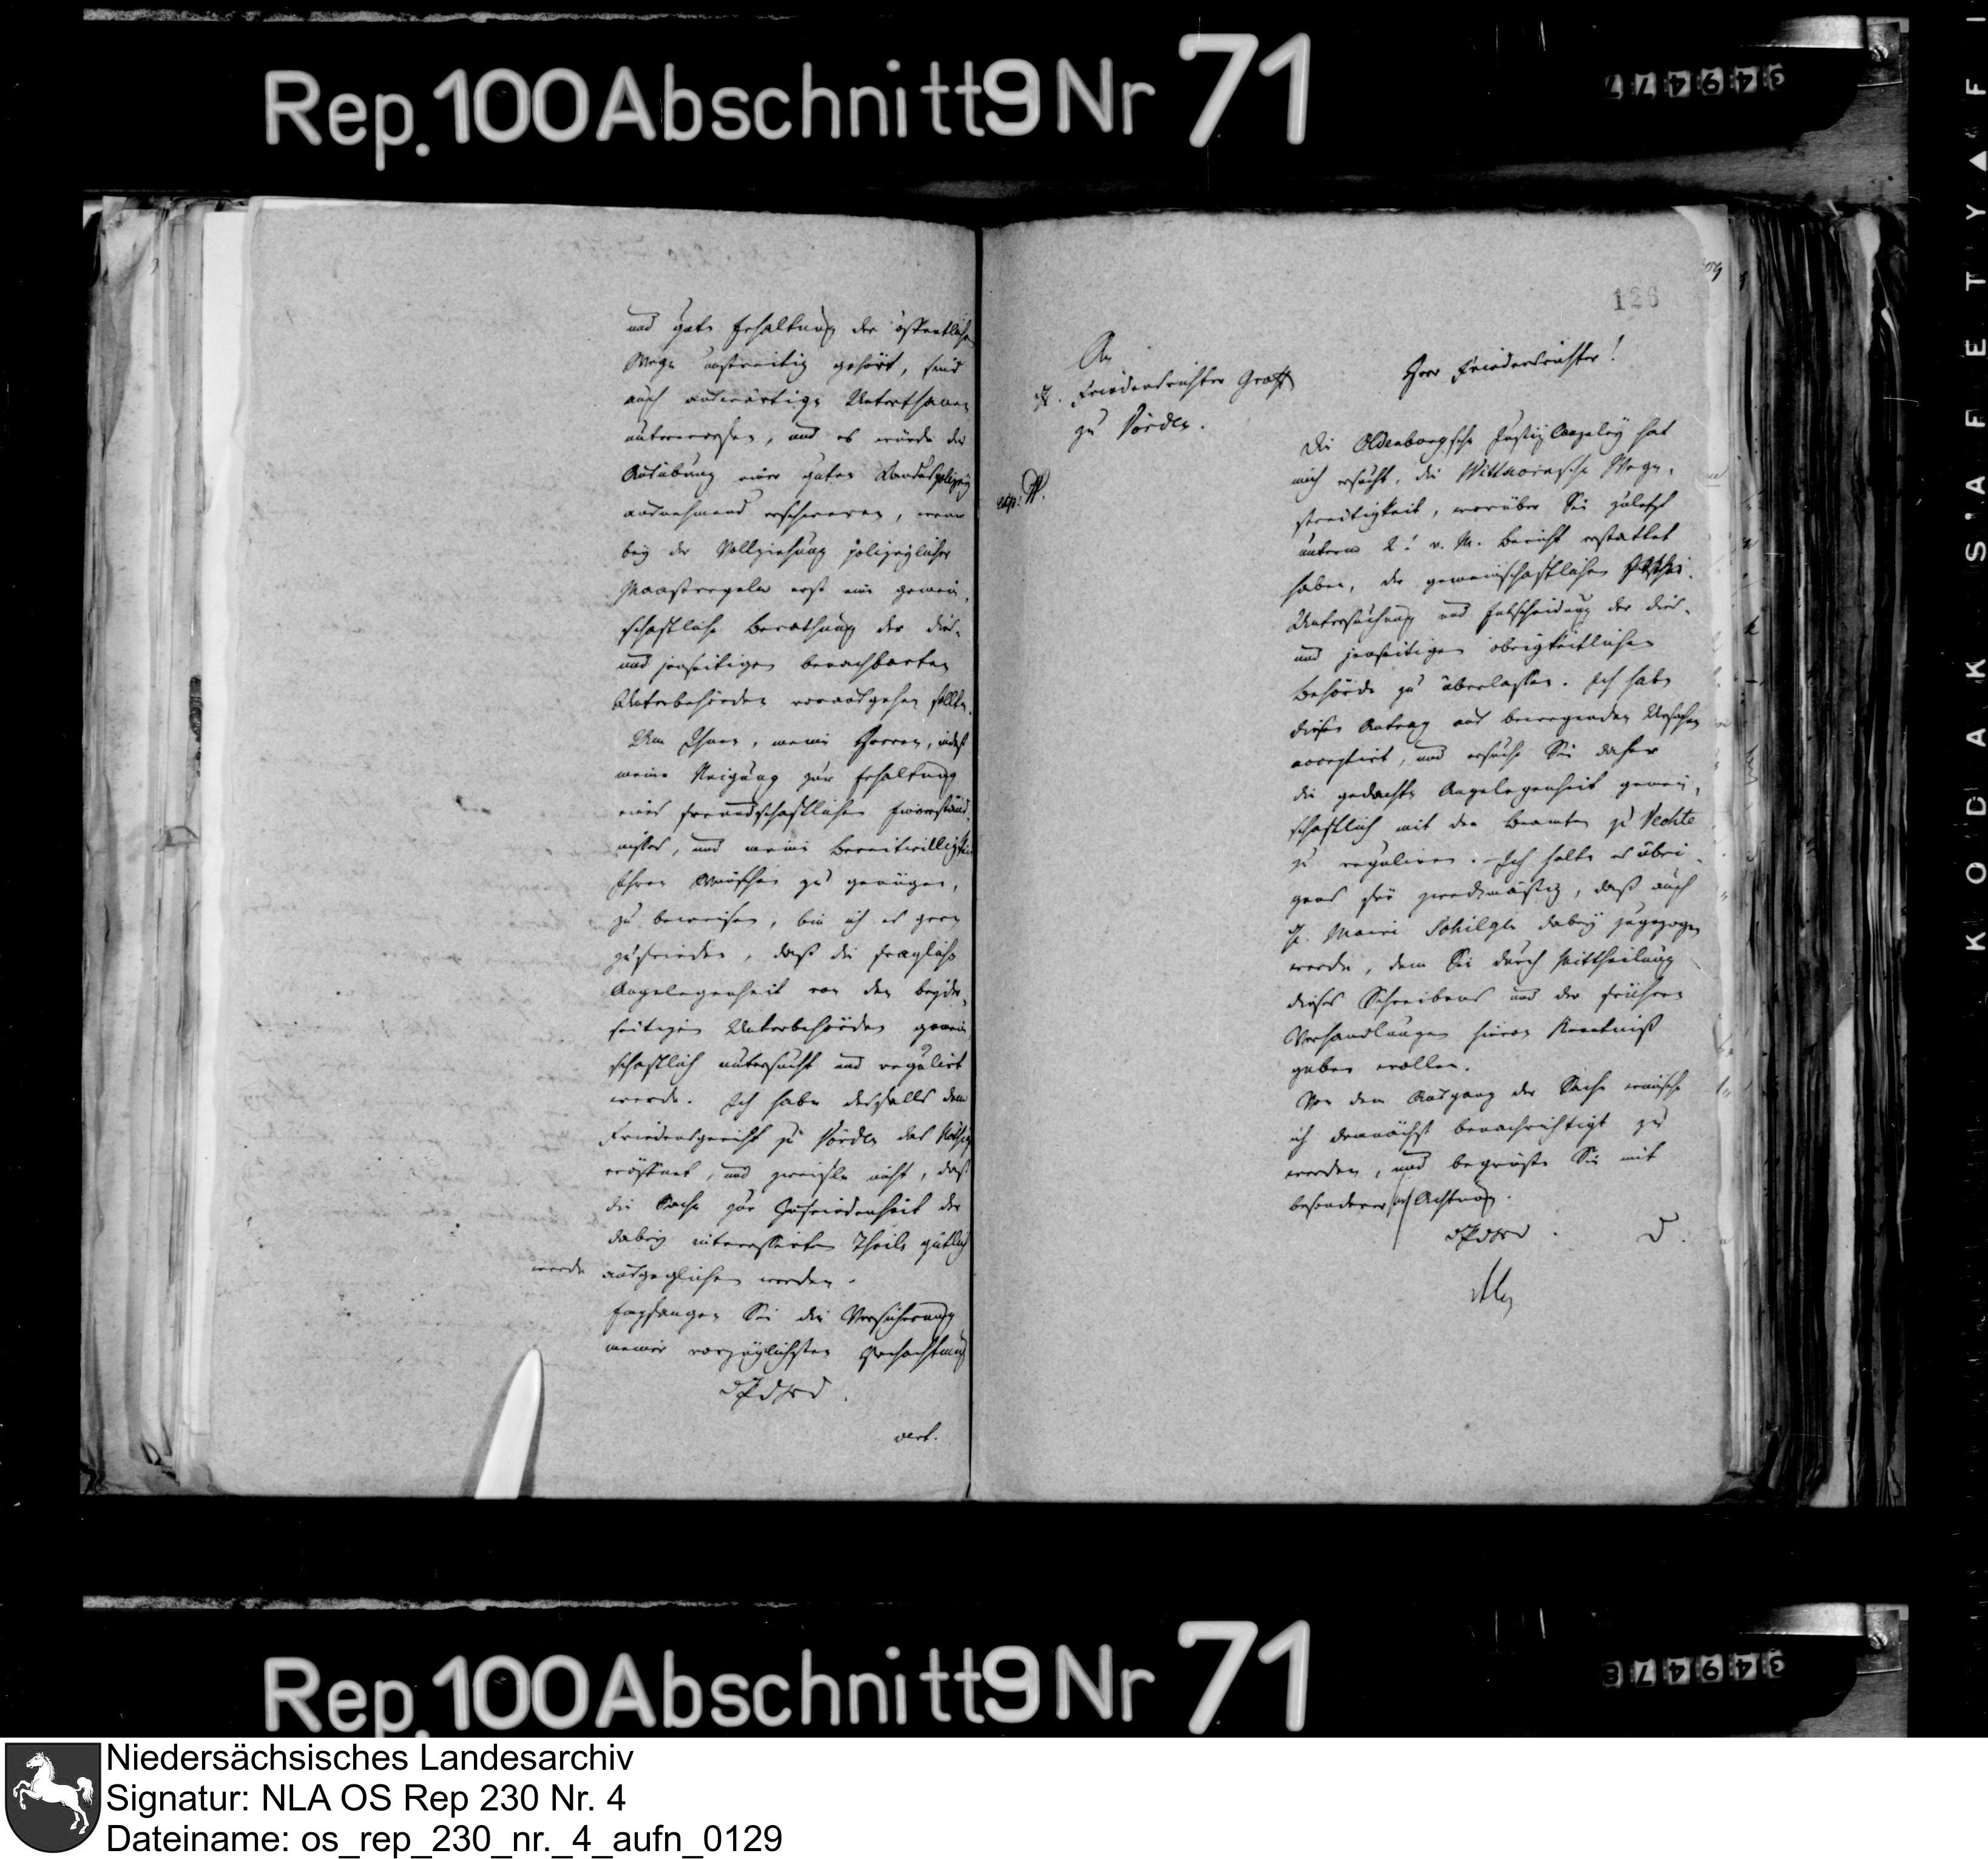 Rep. 100 Abschnitt 9 Nr 71
349477
und gute Erhaltung der öffentlichen
Wege unstreitig gehört, sind
auch auswärtige Unterthanen
unterworfen, und es würde die
Ausübung einer guten Landespolizey
ausnehmend erschweren, wenn
bey der Vollziehung polizeylicher
Maasregeln erst eine gemein-
schaftliche Berathung der dies-
und jenseitigen benachbarten
Unterbehörden vorausgehen sollte.
Um Ihnen, meine Herren, indeß
meine Neigung zur Erhaltung
eines freundschaftlichen Einverständ-
nisses, und meine Bereitwilligkeit
Ihren Wünschen zu genügen,
zu beweisen, bin ich es gern
zufrieden, daß die fragliche
Angelegenheit von den beyder-
seitigen Unterbehörden gemein
schaftlich untersucht und regulirt
werde. Ich habe desfalls dem
Friedensgericht zu Vörden das Nöthige
eröffnet, und zweifle nicht, daß
die Sache zur Zufriedenheit der
dabey interessirten Theile gütlich
werde ausgeglichen werden.
Empfangen Sie die Versicherung
meiner vorzüglichsten Hochachtung
vert.
126
An
H. Friedensrichter Graff
zu Vörden.
exp.
Herr Friedensrichter!
Die Oldenburgsche Justiz Canzeley hat
mich ersucht, die Wittnorusche Wege-
streitigkeit, worüber Sie zuletzt
unterm 2. v. M. Bericht erstattet
haben, der gemeinschaftlichen
Untersuchung und Entscheidung der dies-
und jenseitigen obrigkeitlichen
Behörde zu überlassen. Ich habe
diesen Antrag aus bewegenden Ursachen
acceptirt, und ersuche Sie daher
die gedachte Angelegenheit gemein-
schaftlich mit den Beamten zu Vechte
zu reguliren. Ich halte es übri-
gens für zweckmäßig, daß auch
H. Maire Schilgen dabey zugezogen
werde, dem Sie durch Mittheilung
dieses Schreibens und der frühern
Verhandlungen hievon Kenntniß
geben wollen.
Von dem Ausgang der Sache wünsche
ich demnächst benachrichtigt zu
werden, und begrüße Sie mit
besonderer Achtung.
D.
KODAK SAFETY FI
Rep. 100 Abschnitt 9 Nr 71
349478
Niedersächsisches Landesarchiv
Signatur: NLA OS Rep 230 Nr. 4
Dateiname: os_rep_230_nr._4_aufn_0129